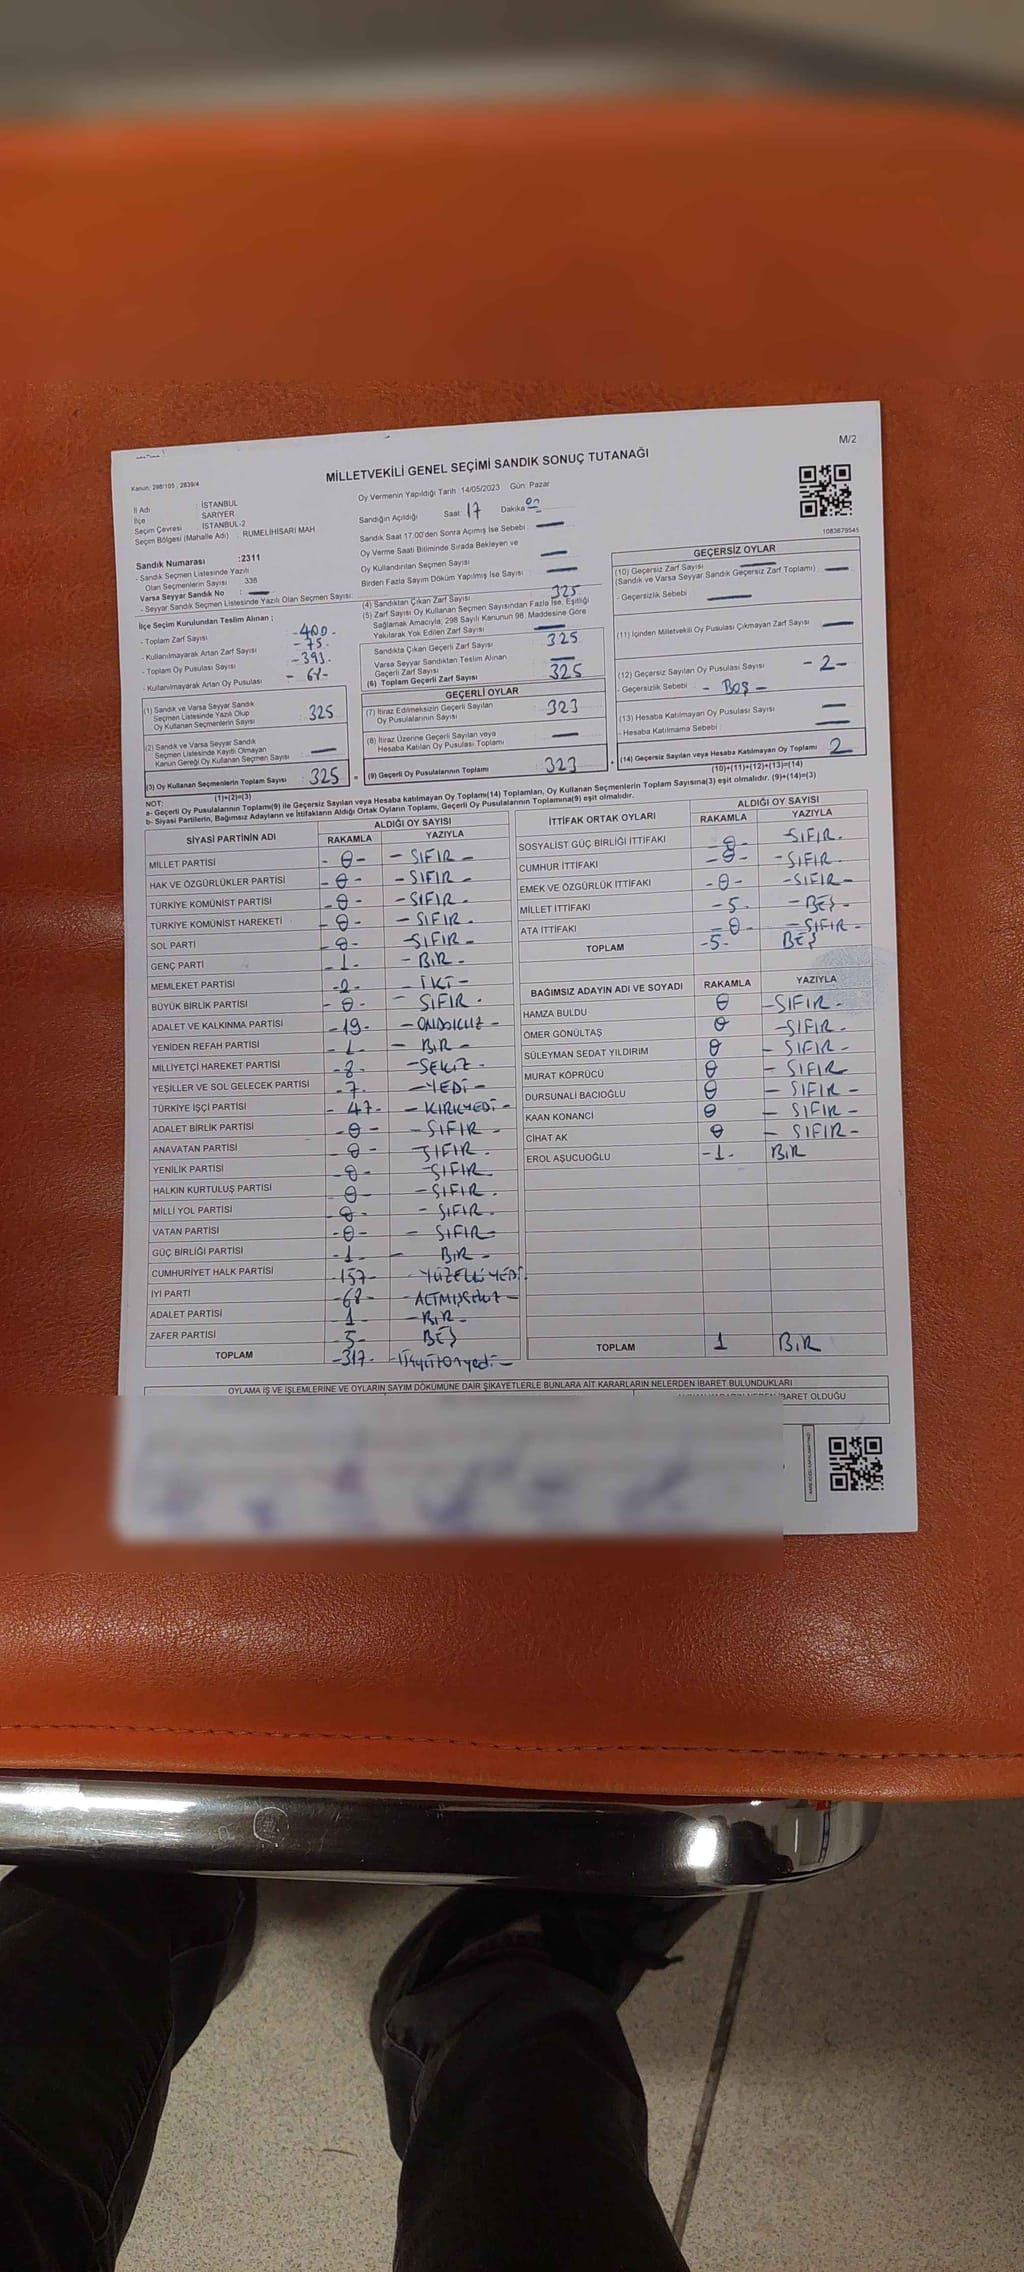 M/2
MİLLETVEKİLİ GENEL SEÇİMİ SANDIK SONUÇ TUTANAĞI
Kanun: 298/105 ; 2839/4
İl Adı : İSTANBUL
İlçe SARIYER
Seçim Çevresi : İSTANBUL-2
Seçim Bölgesi (Mahalle Adı) : RUMELİHİSARI MAH
Sandık Numarası :2311
- Sandık Seçmen Listesinde Yazılı
Olan Seçmenlerin Sayısı 338
Varsa Seyyar Sandık No : —
- Seyyar Sandık Seçmen Listesinde Yazılı Olan Seçmen Sayısı:
Oy Vermenin Yapıldığı Tarih : 14/05/2023 Gün: Pazar
Sandığın Açıldığı Saat: 17 Dakika 00
Sandık Saat 17.00'den Sonra Açımış İse Sebebi : —
Oy Verme Saati Bitiminde Sırada Bekleyen ve
Oy Kullandırılan Seçmen Sayısı —
Birden Fazla Sayım Döküm Yapılmış İse Sayısı —
1083679545
İlçe Seçim Kurulundan Teslim Alınan ;
- Toplam Zarf Sayısı -400-
- Kullanılmayarak Artan Zarf Sayısı -75-
- Toplam Oy Pusulası Sayısı -393-
- Kullanılmayarak Artan Oy Pusulası - 68 -
(1) Sandık ve Varsa Seyyar Sandık
Seçmen Listesinde Yazılı Olup
Oy Kullanan Seçmenlerin Sayısı : 325
(2) Sandık ve Varsa Seyyar Sandık
Seçmen Listesinde Kayıtlı Olmayan
Kanun Gereği Oy Kullanan Seçmen Sayısı —
(3) Oy Kullanan Seçmenlerin Toplam Sayısı : 325 =
(1)+(2)=(3)
(4) Sandıktan Çıkan Zarf Sayısı 325
(5) Zarf Sayısı Oy Kullanan Seçmen Sayısından Fazla İse, Eşitliği
Sağlamak Amacıyla; 298 Sayılı Kanunun 98. Maddesine Göre
Yakılarak Yok Edilen Zarf Sayısı —
Sandıkta Çıkan Geçerli Zarf Sayısı 325
Varsa Seyyar Sandıktan Teslim Alınan
Geçerli Zarf Sayısı —
(6) Toplam Geçerli Zarf Sayısı 325
GEÇERLİ OYLAR
(7) İtiraz Edilmeksizin Geçerli Sayılan
Oy Pusulalarının Sayısı : 323
(8) İtiraz Üzerine Geçerli Sayılan veya
Hesaba Katılan Oy Pusulası Toplamı —
(9) Geçerli Oy Pusulalarının Toplamı : 323 +
GEÇERSİZ OYLAR
(10) Geçersiz Zarf Sayısı
(Sandık ve Varsa Seyyar Sandık Geçersiz Zarf Toplamı) : —
- Geçersizlik Sebebi : —
(11) İçinden Milletvekili Oy Pusulası Çıkmayan Zarf Sayısı : —
(12) Geçersiz Sayılan Oy Pusulası Sayısı : - 2 -
- Geçersizlik Sebebi : - BOŞ -
(13) Hesaba Katılmayan Oy Pusulası Sayısı —
- Hesaba Katılmama Sebebi : —
(14) Geçersiz Sayılan veya Hesaba Katılmayan Oy Toplamı 2
(10)+(11)+(12)+(13)=(14)
NOT:
a- Geçerli Oy Pusulalarının Toplamı(9) ile Geçersiz Sayılan veya Hesaba katılmayan Oy Toplamı(14) Toplamları, Oy Kullanan Seçmenlerin Toplam Sayısına(3) eşit olmalıdır. (9)+(14)=(3)
b- Siyasi Partilerin, Bağımsız Adayların ve İttifakların Aldığı Ortak Oyların Toplamı, Geçerli Oy Pusulalarının Toplamına(9) eşit olmalıdır.
SİYASİ PARTİNİN ADI ALDIĞI OY SAYISI
RAKAMLA YAZIYLA
MİLLET PARTİSİ - 0 - - SIFIR -
HAK VE ÖZGÜRLÜKLER PARTİSİ - 0 - - SIFIR -
TÜRKİYE KOMÜNİST PARTİSİ - 0 - - SIFIR -
TÜRKİYE KOMÜNİST HAREKETİ - 0 - - SIFIR -
SOL PARTİ - 0 - - SIFIR -
GENÇ PARTİ - 1 - - BİR -
MEMLEKET PARTİSİ - 2 - - İKİ -
BÜYÜK BİRLİK PARTİSİ - 0 - - SIFIR -
ADALET VE KALKINMA PARTİSİ - 19 - - ONDOKUZ -
YENİDEN REFAH PARTİSİ - 1 - - BİR -
MİLLİYETÇİ HAREKET PARTİSİ - 8 - - SEKİZ -
YEŞİLLER VE SOL GELECEK PARTİSİ - 7 - - YEDİ -
TÜRKİYE İŞÇİ PARTİSİ - 47 - - KIRKYEDİ -
ADALET BİRLİK PARTİSİ - 0 - - SIFIR -
ANAVATAN PARTİSİ - 0 - SIFIR -
YENİLİK PARTİSİ - 0 - - SIFIR -
HALKIN KURTULUŞ PARTİSİ - 0 - - SIFIR -
MİLLİ YOL PARTİSİ - 0 - - SIFIR -
VATAN PARTİSİ - 0 - - SIFIR -
GÜÇ BİRLİĞİ PARTİSİ - 1 - - BİR -
CUMHURİYET HALK PARTİSİ - 157 - - YÜZELLİYEDİ -
İYİ PARTİ - 68 - - ALTMIŞSEKİZ -
ADALET PARTİSİ 1 - BİR -
ZAFER PARTİSİ - 5 - BEŞ
TOPLAM - 317 - - Üçyüzonyedi -
İTTİFAK ORTAK OYLARI ALDIĞI OY SAYISI
RAKAMLA YAZIYLA
SOSYALİST GÜÇ BİRLİĞİ İTTİFAKI - 0 - - SIFIR -
CUMHUR İTTİFAKI - 0 - - SIFIR -
EMEK VE ÖZGÜRLÜK İTTİFAKI - 0 - - SIFIR -
MİLLET İTTİFAKI - 5 - - BEŞ -
ATA İTTİFAKI - 0 - - SIFIR -
TOPLAM - 5 - BEŞ
BAĞIMSIZ ADAYIN ADI VE SOYADI RAKAMLA YAZIYLA
HAMZA BULDU 0 - SIFIR -
ÖMER GÖNÜLTAŞ 0 - SIFIR -
SÜLEYMAN SEDAT YILDIRIM 0 - SIFIR -
MURAT KÖPRÜCÜ 0 - SIFIR -
DURSUNALİ BACIOĞLU 0 - SIFIR -
KAAN KONANCI 0 - SIFIR -
CİHAT AK 0 - SIFIR -
EROL AŞUCUOĞLU - 1 - BİR
TOPLAM 1 BİR
OYLAMA İŞ VE İŞLEMLERİNE VE OYLARIN SAYIM DÖKÜMÜNE DAİR ŞİKAYETLERLE BUNLARA AİT KARARLARIN NELERDEN İBARET BULUNDUKLARI
İBARET OLDUĞU